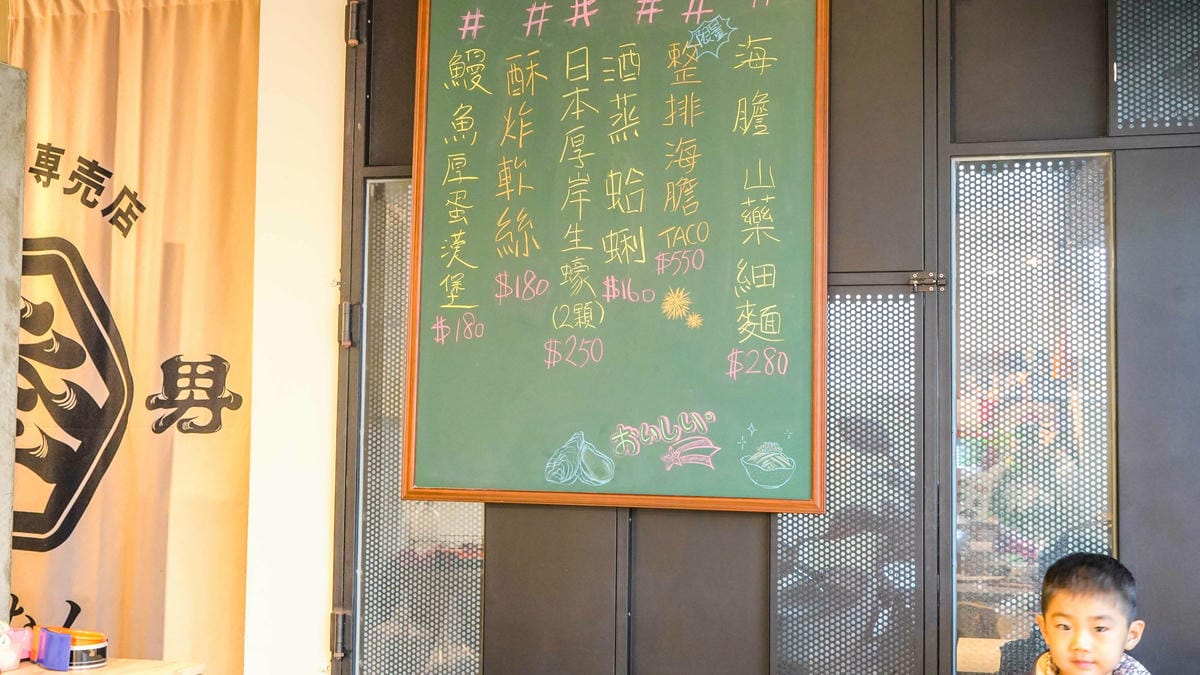 #
海膽山藥細麵
$280
#
限量
整排海膽TACO
$550
#
酒蒸蛤蜊
$160
#
日本厚岸生蠔(2顆)
$250
#
酥炸軟絲
$180
#
鰻魚厚蛋漢堡
$180
おいしい。
専売店
男